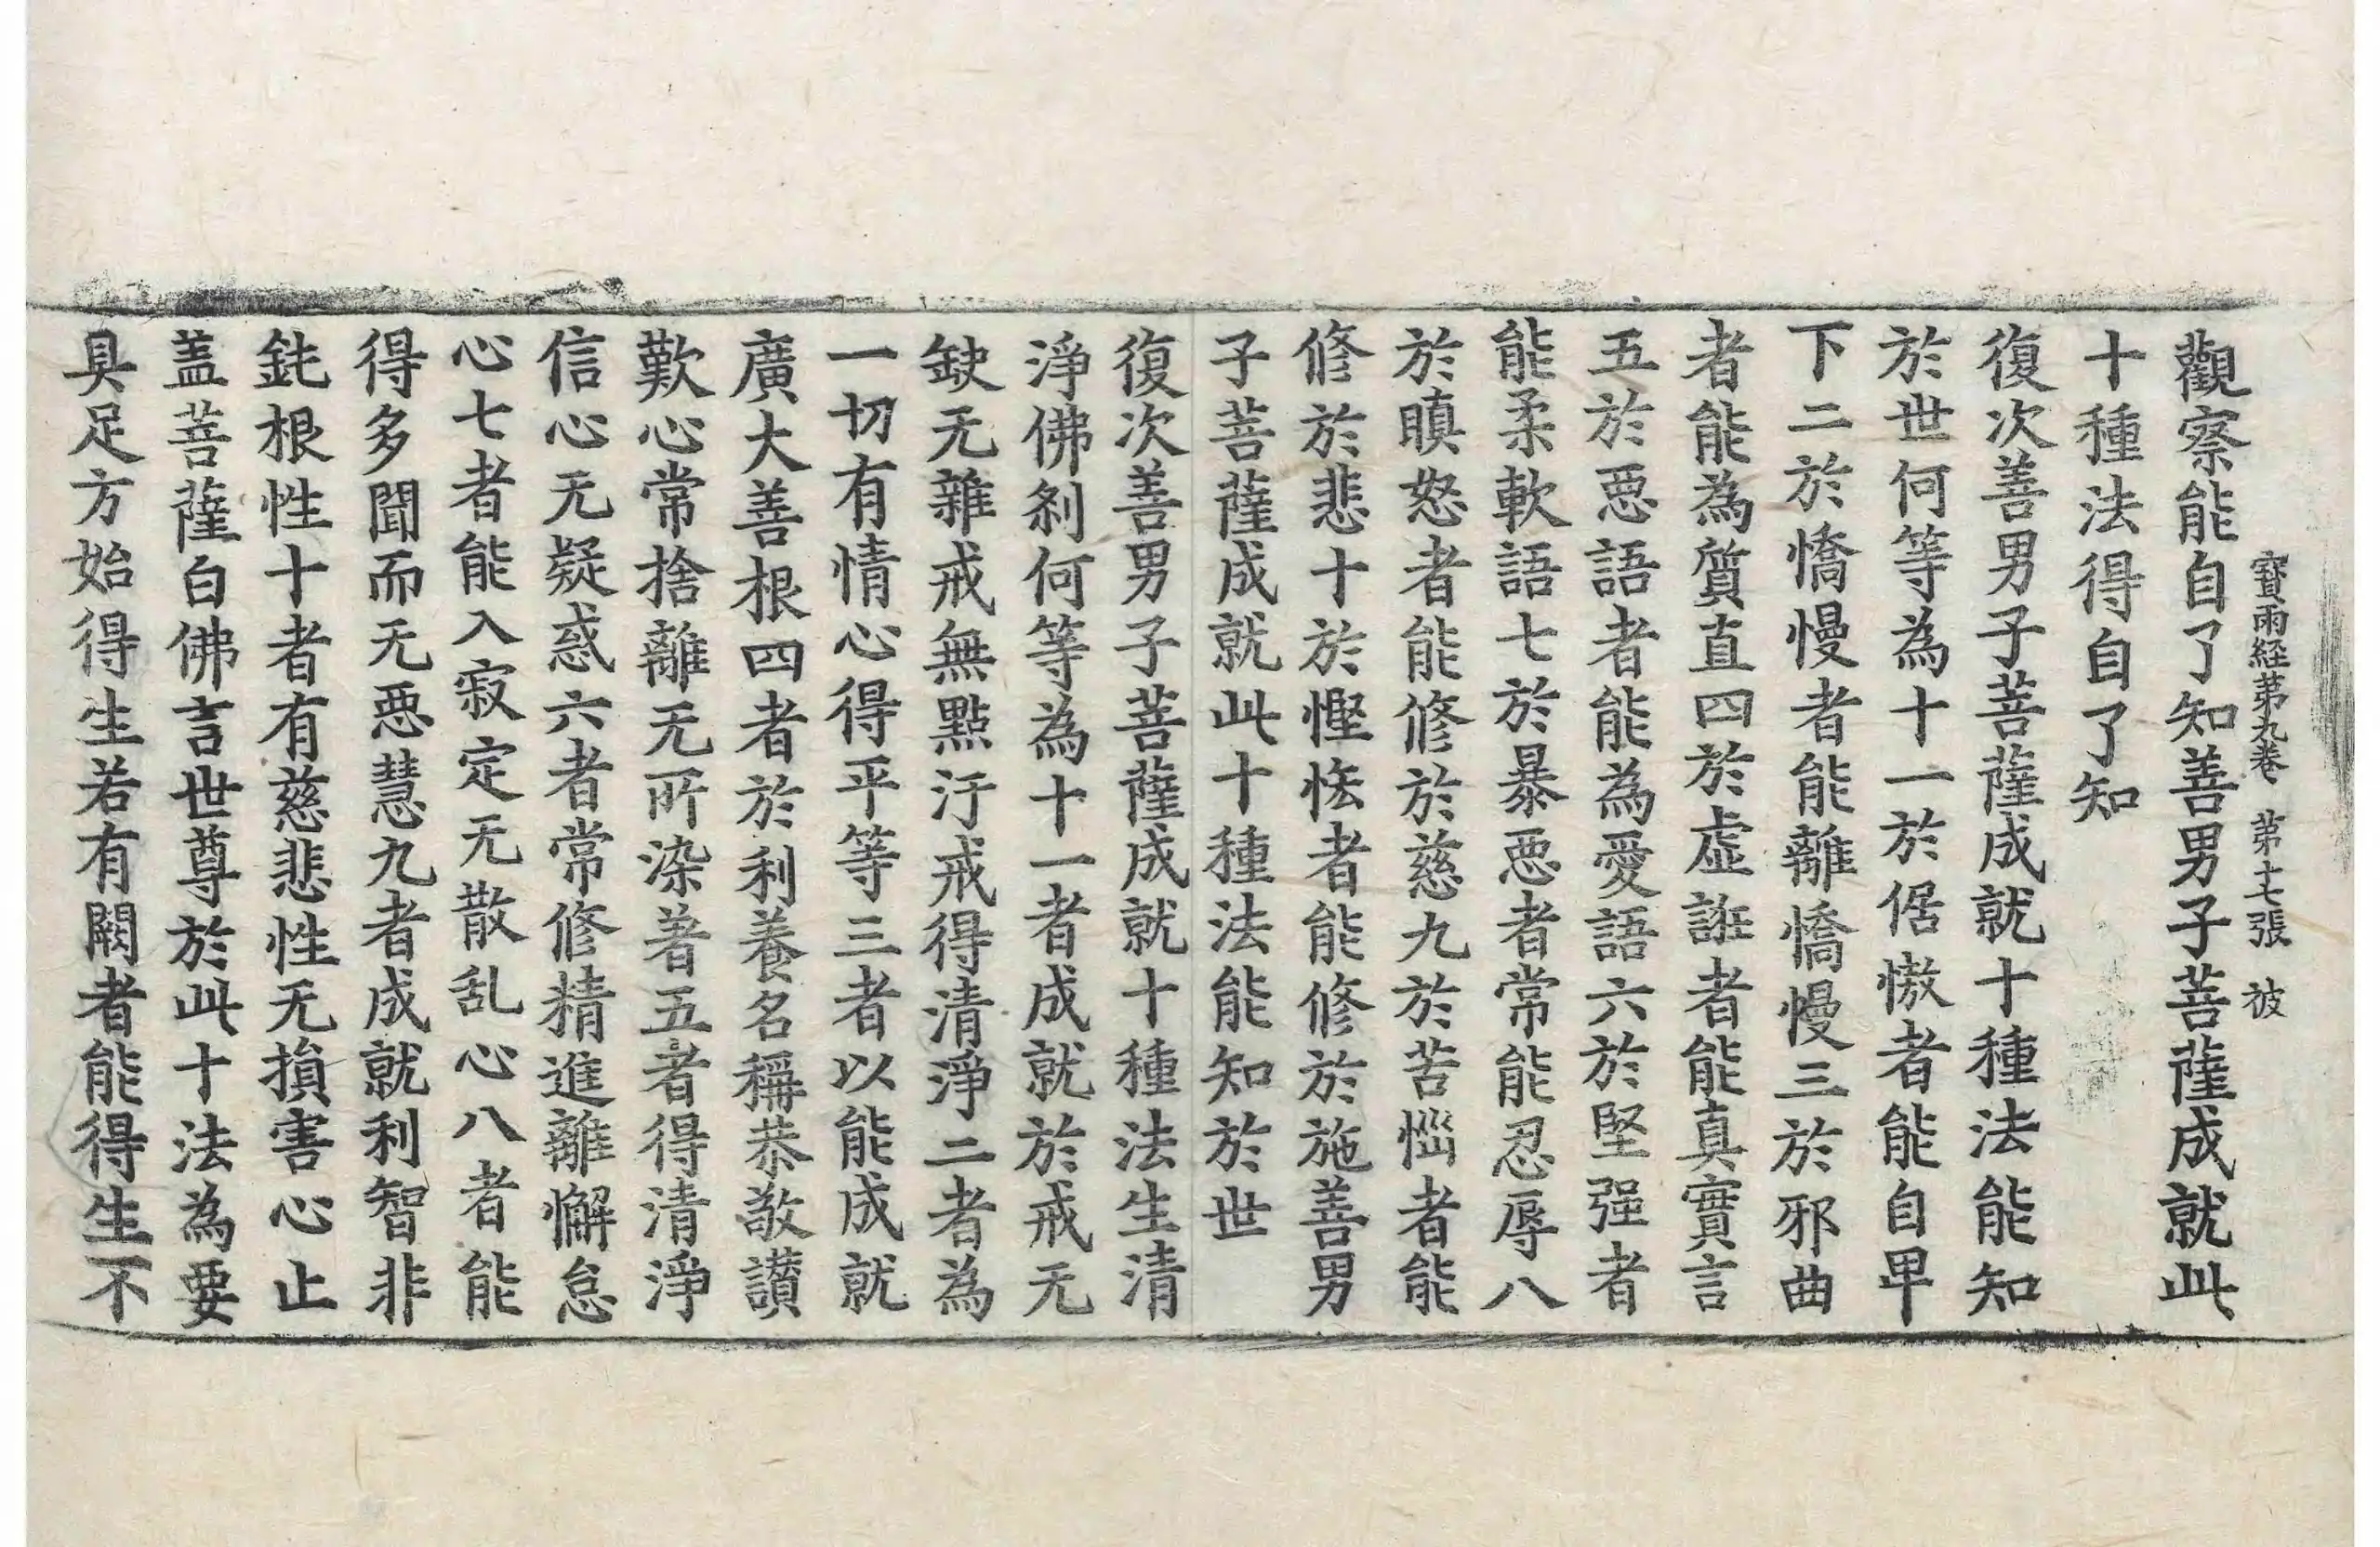 寶雨経苐九卷 苐十七張 彼
觀察能自了知善男子菩薩成就此
十種法得自了知
復次善男子菩薩成就十種法能知
於世何等為十一於倨慠者能自卑
下二於憍慢者能離憍慢三於邪曲
者能為質直四於虛誑者能真實言
五於惡語者能為愛語六於堅强者
能柔軟語七於暴惡者常能忍辱八
於瞋怒者能修於慈九於苦惱者能
修於悲十於慳悋者能修於施善男
子菩薩成就此十種法能知於世
復次善男子菩薩成就十種法生清
淨佛刹何等為十一者成就於戒无
缺无雜戒無點汙戒得清淨二者為
一切有情心得平等三者以能成就
廣大善根四者於利養名稱恭敬讃
歎心常捨離无所染著五者得清淨
信心无疑惑六者常修精進離懈怠
心七者能入寂定无散乱心八者能
得多聞而无惡慧九者成就利智非
鈍根性十者有慈悲性无損害心止
盖菩薩白佛言世尊於此十法為要
具足方始得生若有闕者能得生不